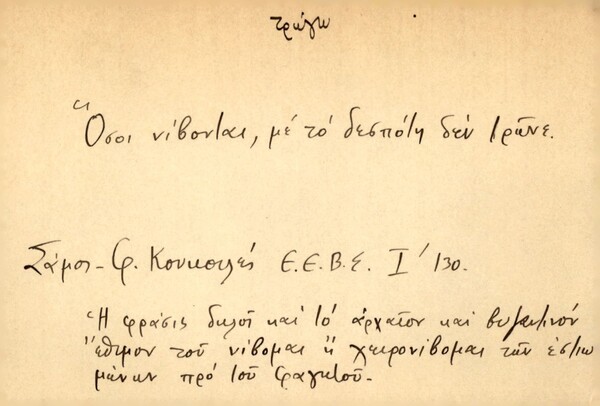 τρώγω
Ὅσοι νίβονται, μέ τό δεσπότη δέν τρῶνε.
Σάμος - Φ. Κουκουλές Ε.Ε.Β.Σ. Ι' 130.
Ἡ φράσις δηλοῖ καί τό ἀρχαῖον καί βυζαντινόν
ἔθιμον τοῦ νίβομαι ἤ χειρονίβομαι τῶν ἑστιω
μένων πρό τοῦ φαγητοῦ.-